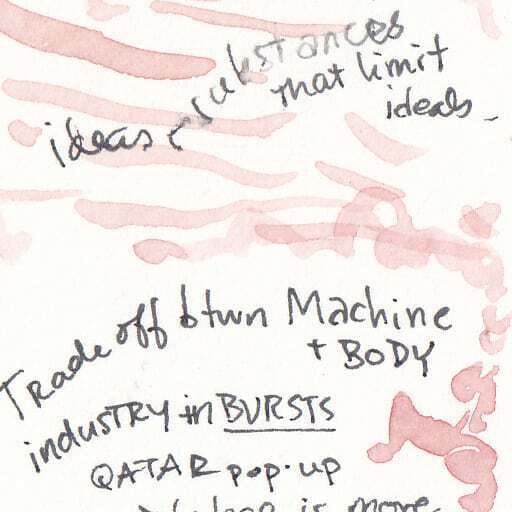 ideas & substances
that limit
ideals
Trade off btwn Machine
+ BODY
industry in BURSTS
QATAR pop-up
is more